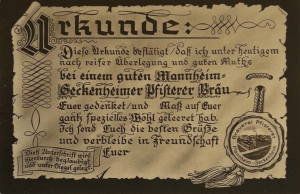 Urkunde:
Diese Urkunde bestätigt, daß ich unter heutigem
nach reifer Überlegung und guten Muths
bei einem guten Mannheim-
Seckenheimer Pfisterer Bräu
Euer gedenket und Maß auf Euer
gantz spezielles Wohl geleeret hab.
Ich send Euch die besten Grüße
und verbleibe in Freundschaft
Euer
Diese Unterschrift wird
hierdurch beglaubigt
und unter Sigel gelegt.
Brauerei Pfisterer